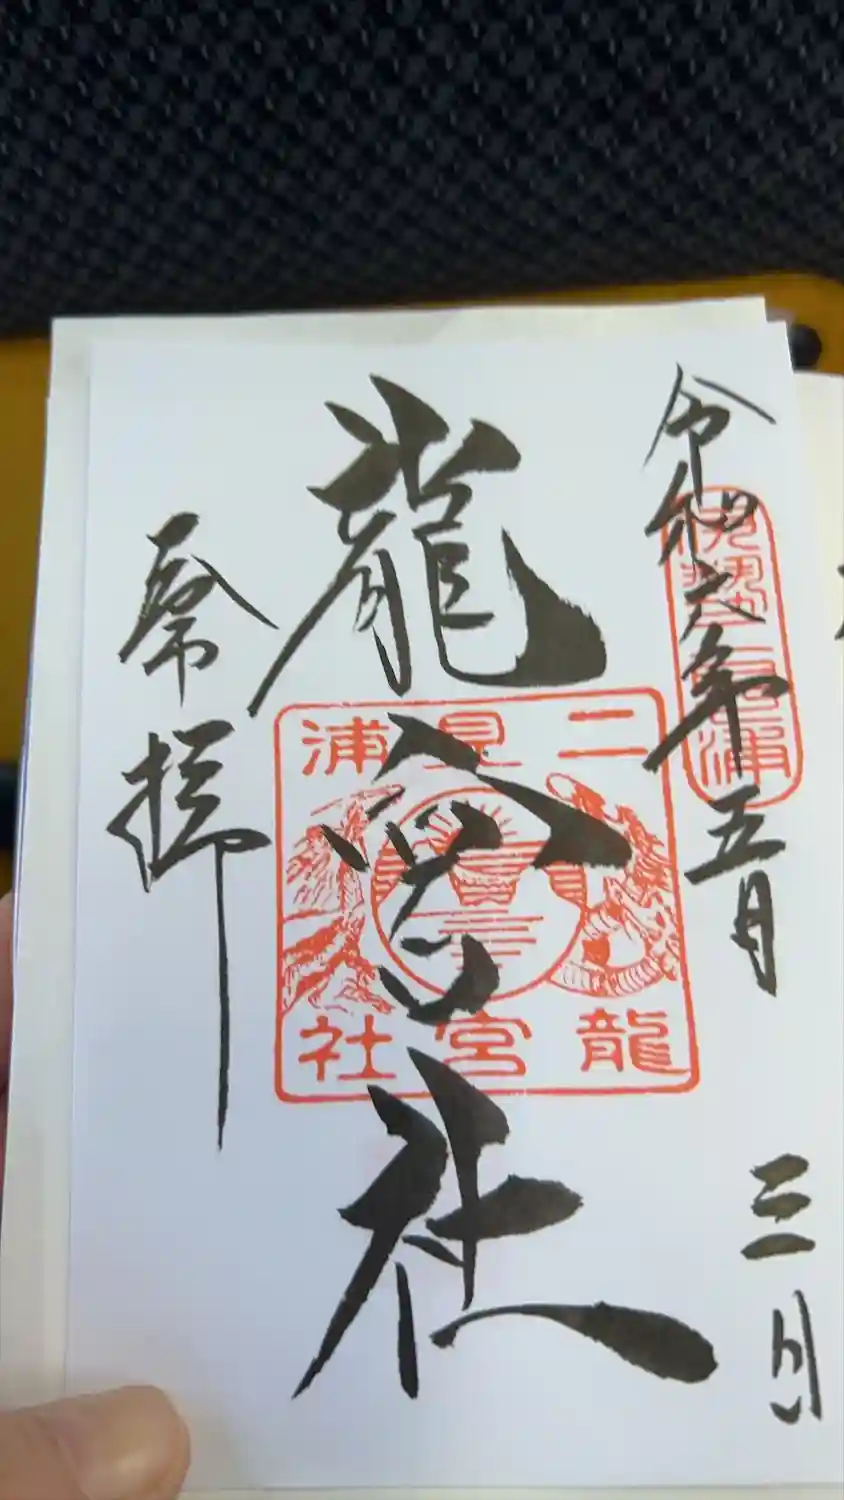 令和六年五月三日
伊勢二見浦
龍宮社
二見浦
龍宮社
奉拝